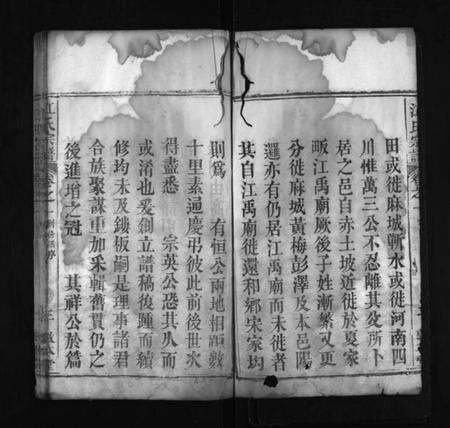 田或徙麻城蘄水或徙河南四
川惟萬三公不忍離其父所卜
居之邑自赤土坡近徙於夏家
畈江禹廟厥後子姓漸繁又更
分徙麻城黃梅彭澤及本邑陽
邏亦有仍居江禹廟而未徙者
其自江禹廟徙還和鄉宋家均
則爲由 有恒公兩地相距數
十里素遍慶弔彼此前後世次
得盡悉 宗英公恐其久而
或淆也爰創立譜稿後踵而續
修均未及鋟板嗣是理事諸君
合族聚謀重加采輯舊貫仍之
後進增之冠 其祥公於篇
江氏宗譜
卷之一